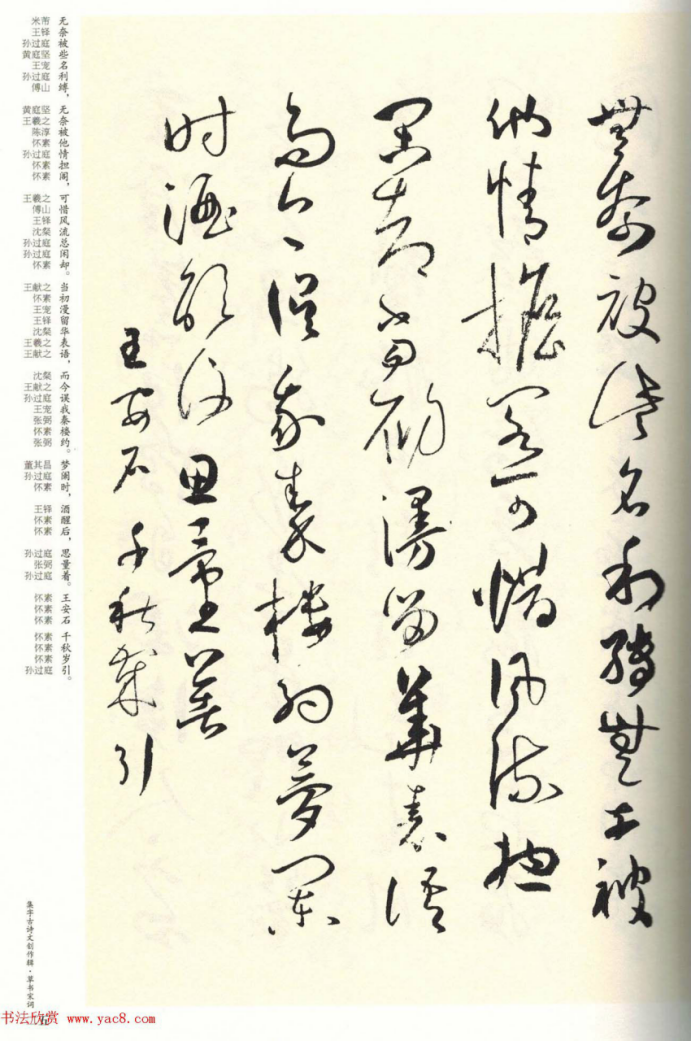 無奈被些名利縛無奈被
他情擔阁可惜风流总
闲却當初漫留華表語
而今误我秦楼约梦阑
时酒醒后思量着
王安石千秋岁引
米芾 无
王铎 奈
孙过庭 被
黄庭坚 些
王宠 名
孙过庭 利
傅山 缚，
黄庭坚 无
王羲之 奈
陈淳 被
怀素 他
孙过庭 情
怀素 担
怀素 阁，
王羲之 可
傅山 惜
王铎 风
沈粲 流
孙过庭 总
孙过庭 闲
怀素 却。
王献之 当
怀素 初
王宠 漫
王铎 留
沈粲 华
王羲之 表
王献之 语，
沈粲 而
王献之 今
孙过庭 误
王宠 我
张弼 秦
怀素 楼
张弼 约。
董其昌 梦
孙过庭 阑
怀素 时，
王铎 酒
怀素 醒
怀素 后，
孙过庭 思
张弼 量
孙过庭 着。
怀素 王
怀素 安
怀素 石
怀素 千
怀素 秋
怀素 岁
孙过庭 引。
集字古诗文创作辑·草书宋词
书法欣赏 www.yac8.com